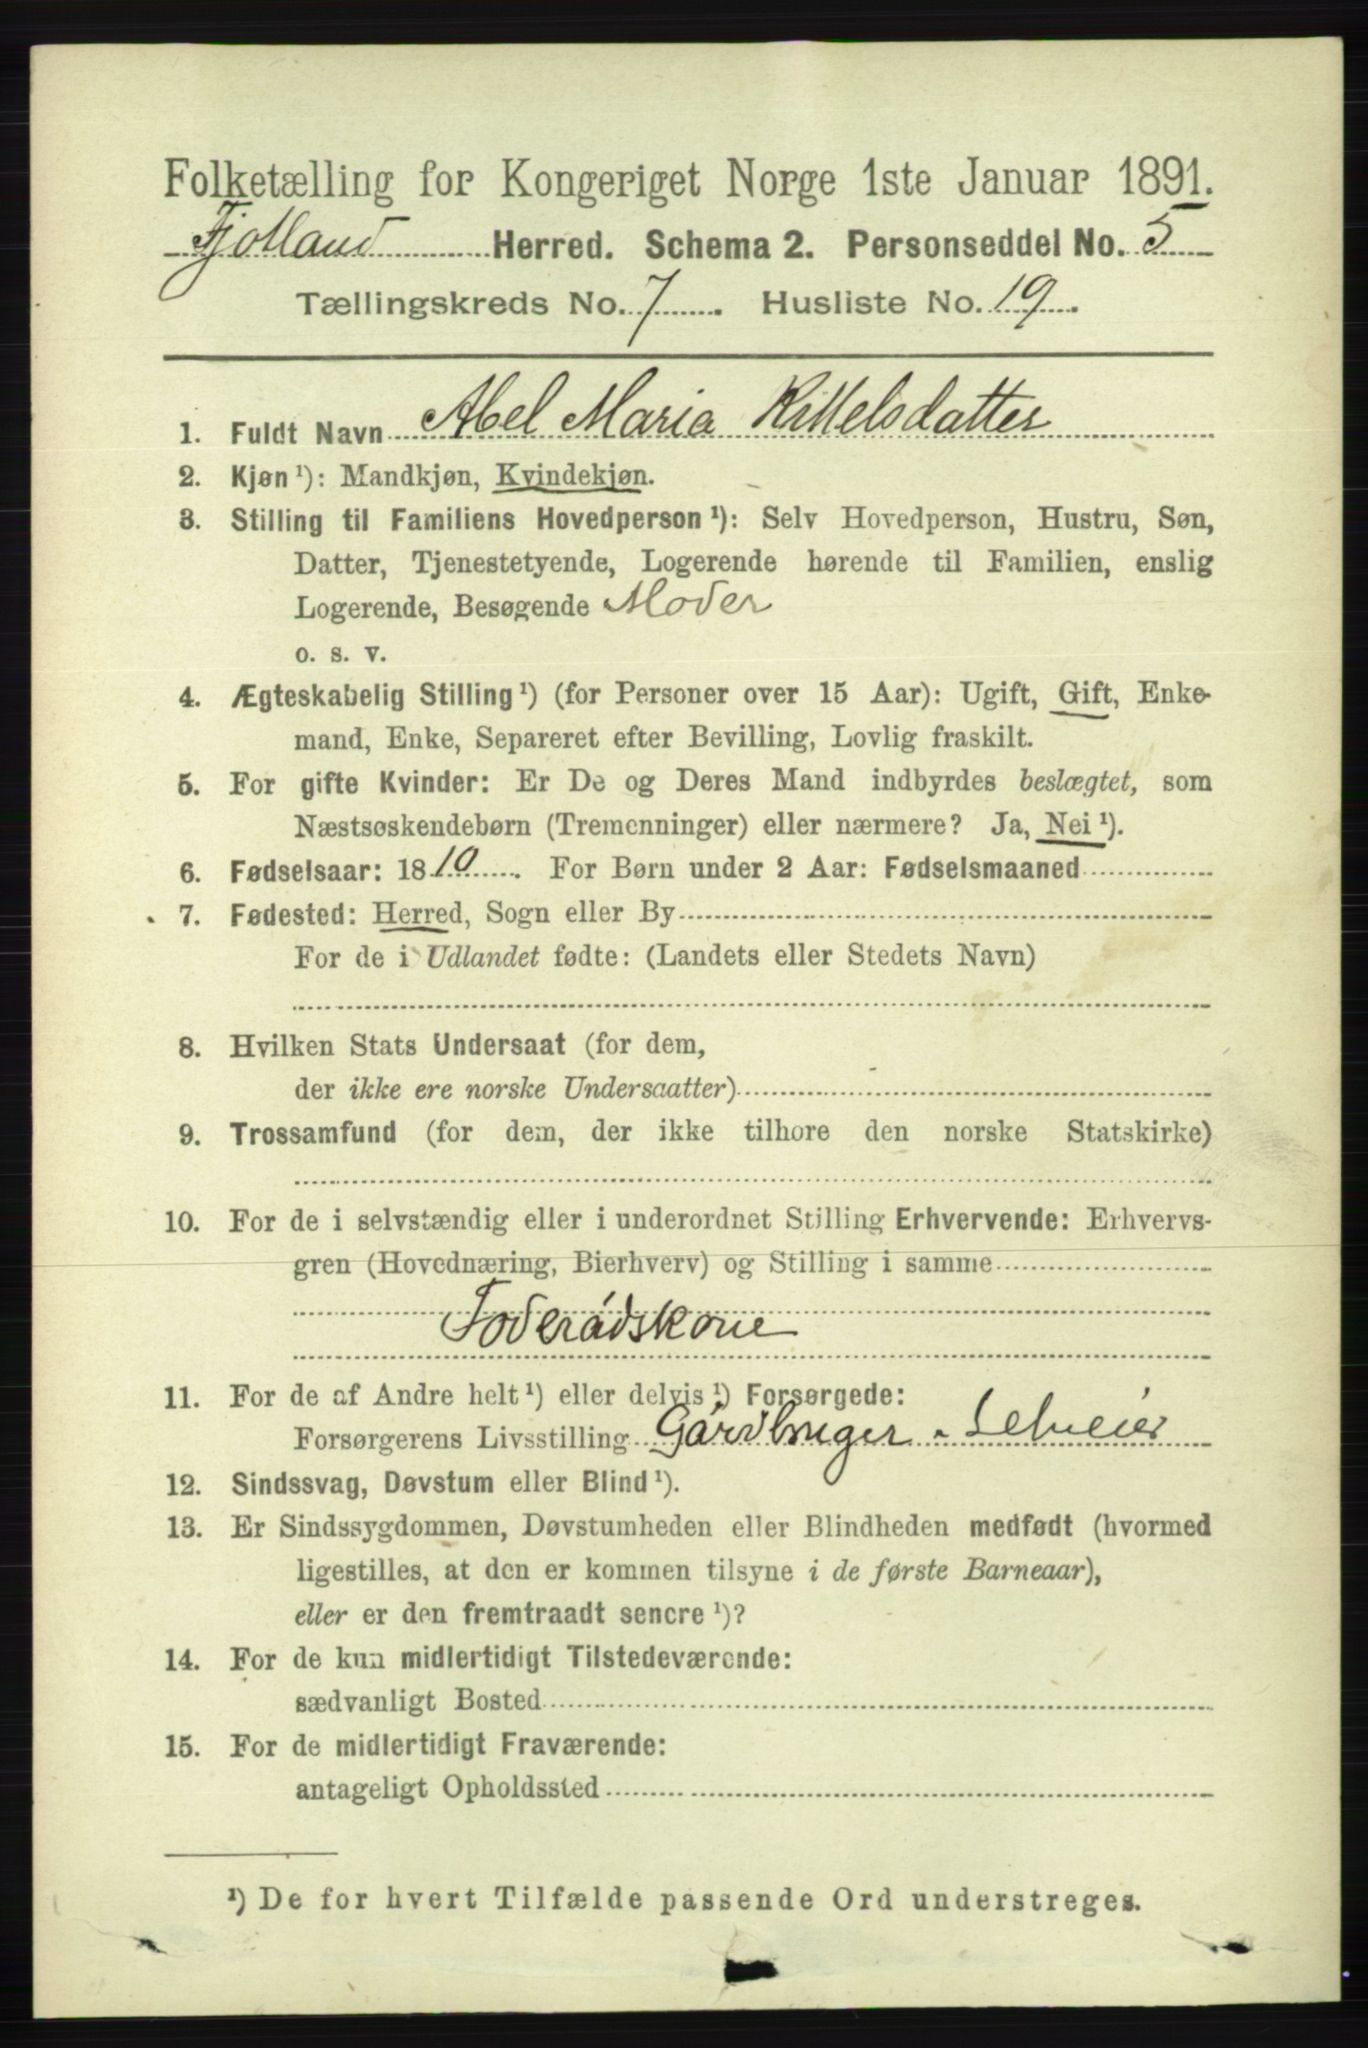 Folketælling for Kongeriget Norge 1ste Januar 1891.
Fjotland Herred. Schema 2. Personseddel No. 5
Tællingskreds No. 7. Husliste No. 19.
1. Fuldt Navn Abel Maria Kittelsdatter
2. Kjøn ¹): Mandkjøn, Kvindekjøn.
3. Stilling til Familiens Hovedperson ¹): Selv Hovedperson, Hustru, Søn,
Datter, Tjenestetyende, Logerende hørende til Familien, enslig
Logerende, Besøgende Moder
o. s. v.
4. Ægteskabelig Stilling ¹) (for Personer over 15 Aar): Ugift, Gift, Enke-
mand, Enke, Separeret efter Bevilling, Lovlig fraskilt.
5. For gifte Kvinder: Er De og Deres Mand indbyrdes beslægtet, som
Næstsøskendebørn (Tremenninger) eller nærmere? Ja, Nei ¹).
6. Fødselsaar: 1810. For Børn under 2 Aar: Fødselsmaaned
7. Fødested: Herred, Sogn eller By
For de i Udlandet fødte: (Landets eller Stedets Navn)
8. Hvilken Stats Undersaat (for dem,
der ikke ere norske Undersaatter)
9. Trossamfund (for dem, der ikke tilhøre den norske Statskirke)
10. For de i selvstændig eller i underordnet Stilling Erhvervende: Erhvervs-
gren (Hovednæring, Bierhverv) og Stilling i samme
Foderådskone
11. For de af Andre helt ¹) eller delvis ¹) Forsørgede:
Forsørgerens Livsstilling Gårdbruger - Selveier
12. Sindssvag, Døvstum eller Blind ¹).
13. Er Sindssygdommen, Døvstumheden eller Blindheden medfødt (hvormed
ligestilles, at den er kommen tilsyne i de første Barneaar),
eller er den fremtraadt senere ¹)?
14. For de kun midlertidigt Tilstedeværende:
sædvanligt Bosted
15. For de midlertidigt Fraværende:
antageligt Opholdssted
¹) De for hvert Tilfælde passende Ord understreges.